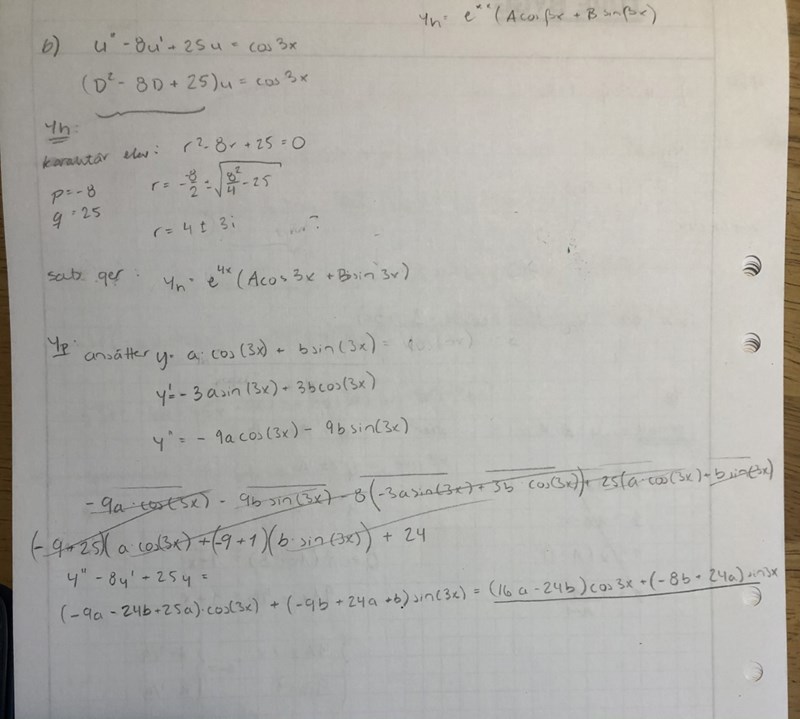 yh = e^αx (A cos βx + B sin βx)
b) u'' - 8u' + 25u = cos 3x
(D² - 8D + 25)u = cos 3x
yh:
r² - 8r + 25 = 0
p = -8
q = 25
r = - -8/2 ± √(8²/4 - 25)
r = 4 ± 3i
sats ger: yh = e^4x (A cos 3x + B sin 3x)
yp: ansätter y = a · cos(3x) + b sin(3x) =
y' = -3a sin(3x) + 3b cos(3x)
y'' = -9a cos(3x) - 9b sin(3x)
-9a · cos(3x) - 9b sin(3x) - 8(-3a sin(3x) + 3b cos(3x)) + 25(a · cos(3x) + b sin(3x)
(-9 + 25)(a · cos(3x) + (-9 + 1)(b · sin(3x)) + 24
y'' - 8y' + 25y =
(-9a - 24b + 25a) · cos(3x) + (-9b + 24a + b) sin(3x) = (16a - 24b) cos 3x + (-8b + 24a) sin 3x